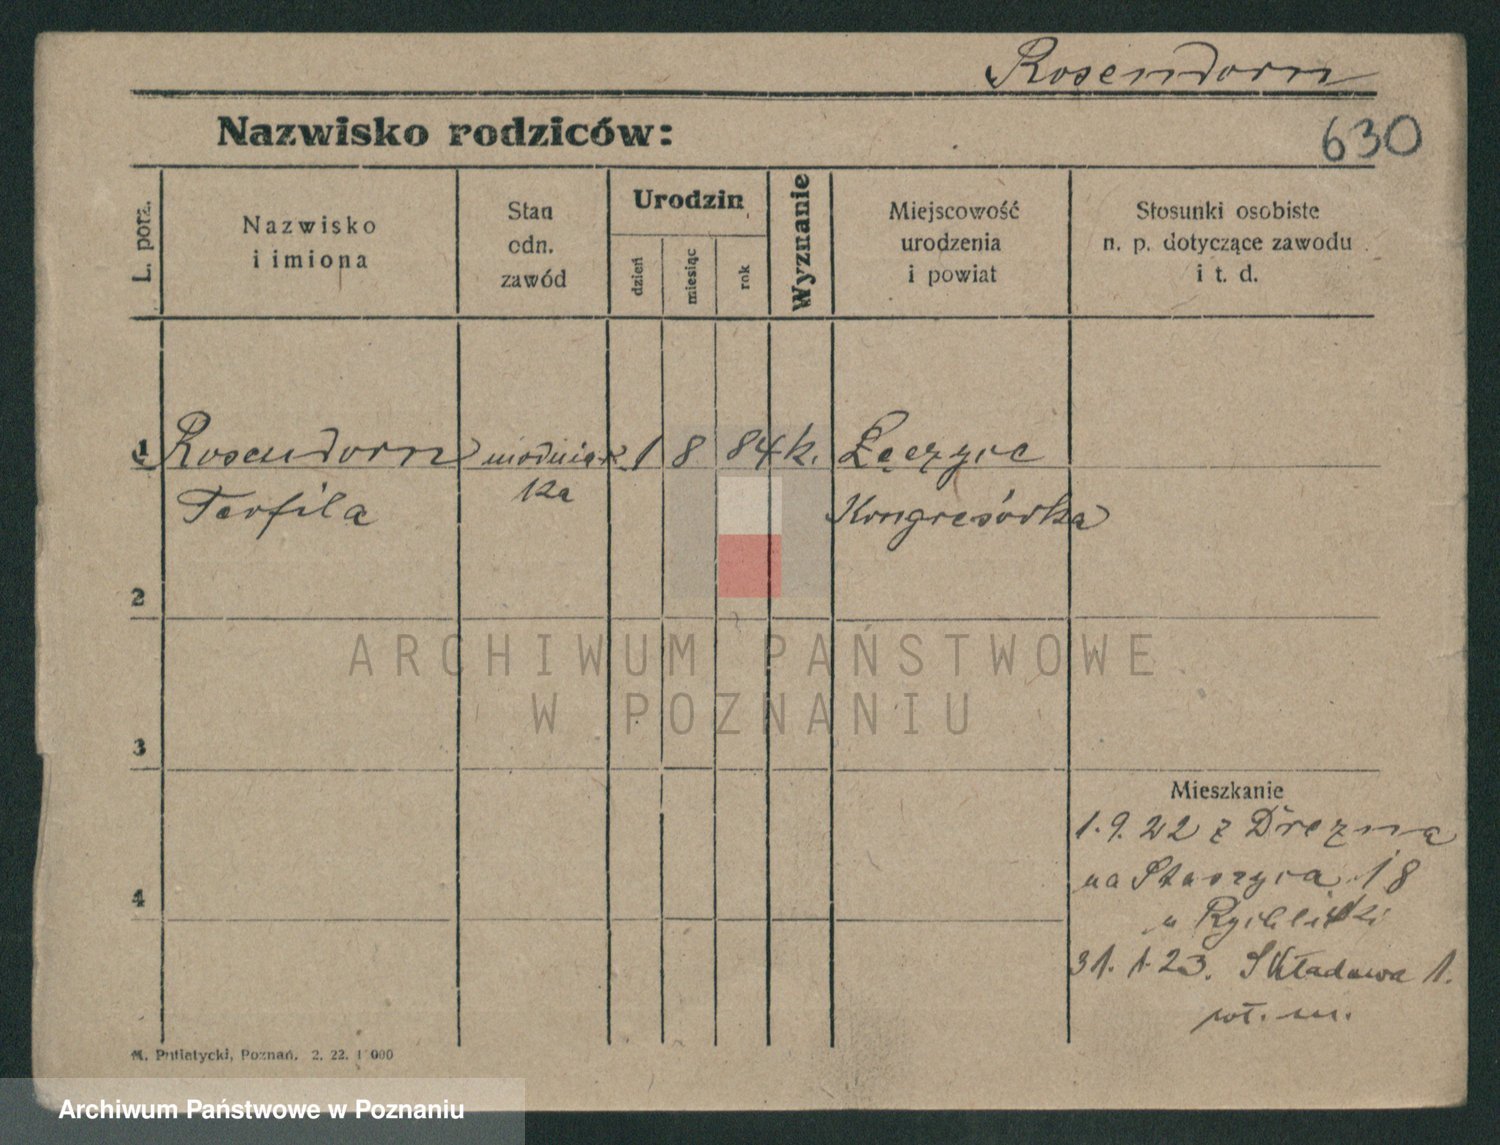 Rosendorn
Nazwisko rodziców:
630
L. porz.
Nazwisko
i imiona
Stan
odn.
zawód
Urodzin
dzień
miesiąc
rok
Wyznanie
Miejscowość
urodzenia
i powiat
Stosunki osobiste
n. p. dotyczące zawodu
i t. d.
1 Rosendorn 1 8 84 k. Łęczyce
Teofila Kongresówka
2
3
4
Mieszkanie
1.9.22 z Drezna
na Staszyca 18
u
31.1.23. Składowa 1.
wł. m.
M. Putiatycki, Poznań. 2. 22. 1 000
ARCHIWUM PAŃSTWOWE
W POZNANIU
Archiwum Państwowe w Poznaniu